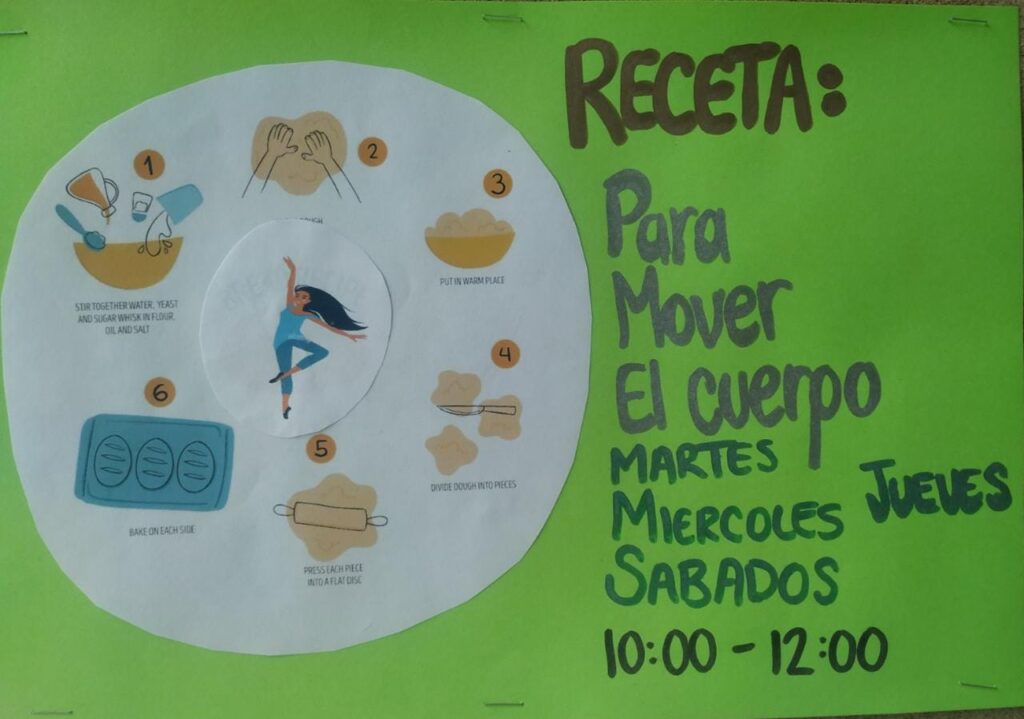 RECETA:
Para
Mover
El cuerpo
MARTES
MIERCOLES JUEVES
SABADOS
10:00 - 12:00
1
STIR TOGETHER WATER, YEAST
AND SUGAR WHISK IN FLOUR,
OIL AND SALT
2
3
PUT IN WARM PLACE
4
DIVIDE DOUGH INTO PIECES
5
PRESS EACH PIECE
INTO A FLAT DISC
6
BAKE ON EACH SIDE